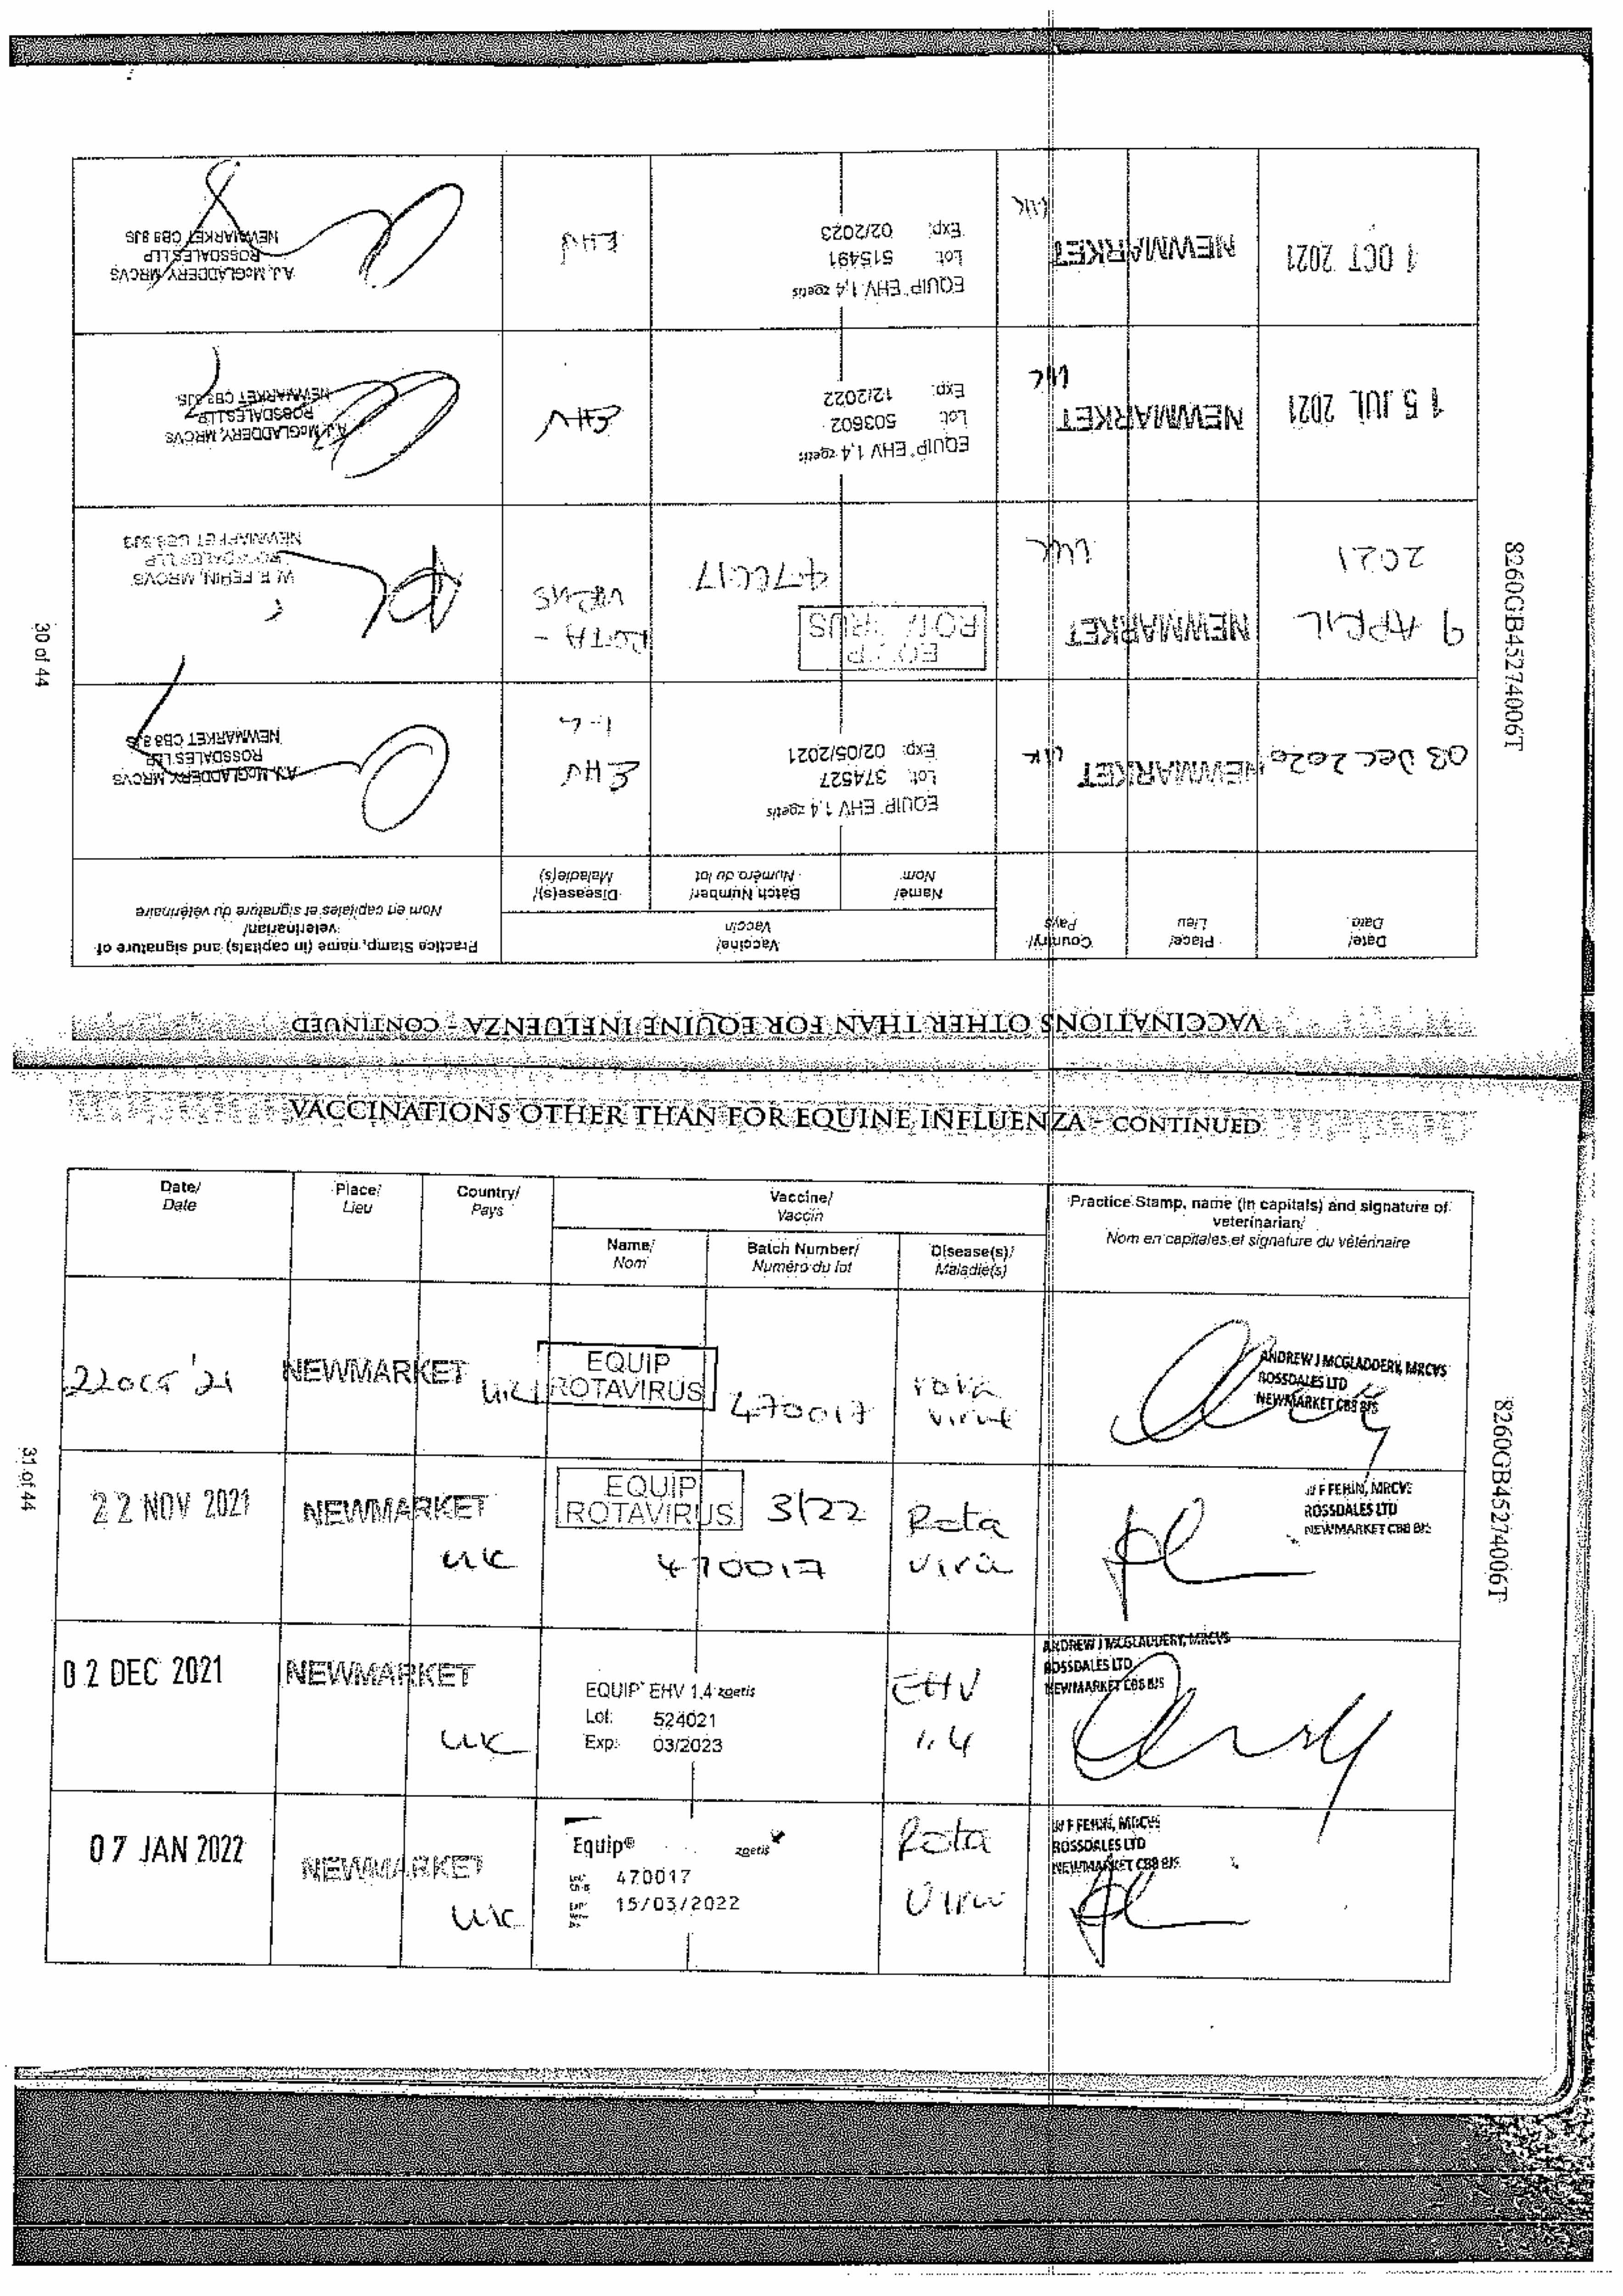 VACCINATIONS OTHER THAN FOR EQUINE INFLUENZA - CONTINUED
Date/ Place/ Country/ Vaccine/ Practice Stamp, name (in capitals) and signature of
Date Lieu Pays Vaccin veterinarian/
Name/ Batch Number/ Disease(s)/ Nom en capitales et signature du vétérinaire
Nom Numéro du lot Maladie(s)
03 DEC 2020 NEWMARKET UK
EQUIP EHV 1,4 zoetis
Lot: 374527
Exp: 02/05/2021
EHV
1-4
A.J. McGLADDERY, MRCVS
ROSSDALES LLP
NEWMARKET CB8 8JS
9 APRIL
2021
NEWMARKET
UK
EQUIP
ROTAVIRUS
470017
ROTA -
VIRUS
W. F. FEHIN, MRCVS
ROSSDALES LLP
NEWMARKET CB8 8JS
15 JUL 2021
NEWMARKET
UK
EQUIP EHV 1,4 zoetis
Lot: 503602
Exp: 12/2022
EHV
A.J. McGLADDERY, MRCVS
ROSSDALES LLP
NEWMARKET CB8 8JS
1 OCT 2021
NEWMARKET
UK
EQUIP EHV 1,4 zoetis
Lot: 515491
Exp: 02/2023
EHV
A.J. McGLADDERY, MRCVS
ROSSDALES LLP
NEWMARKET CB8 8JS
30 of 44
8260GB45274006T
VACCINATIONS OTHER THAN FOR EQUINE INFLUENZA - CONTINUED
Date/ Place/ Country/ Vaccine/ Practice Stamp, name (in capitals) and signature of
Date Lieu Pays Vaccin veterinarian/
Name/ Batch Number/ Disease(s)/ Nom en capitales et signature du vétérinaire
Nom Numéro du lot Maladie(s)
22 OCT '21
NEWMARKET
UK
EQUIP
ROTAVIRUS
470017
rota
ANDREW J MCGLADDERY, MRCVS
ROSSDALES LTD
NEWMARKET CB8 8JS
22 NOV 2021
NEWMARKET
UK
EQUIP
ROTAVIRUS
3/22
470017
Rota
W F FEHIN, MRCVS
ROSSDALES LTD
NEWMARKET CB8 8JS
02 DEC 2021
NEWMARKET
UK
EQUIP EHV 1,4 zoetis
Lot: 524021
Exp: 03/2023
EHV
1.4
ANDREW J MCGLADDERY, MRCVS
ROSSDALES LTD
NEWMARKET CB8 8JS
07 JAN 2022
NEWMARKET
UK
Equip® zoetis
470017
15/03/2022
Rota
W F FEHIN, MRCVS
ROSSDALES LTD
NEWMARKET CB8 8JS
31 of 44
8260GB45274006T